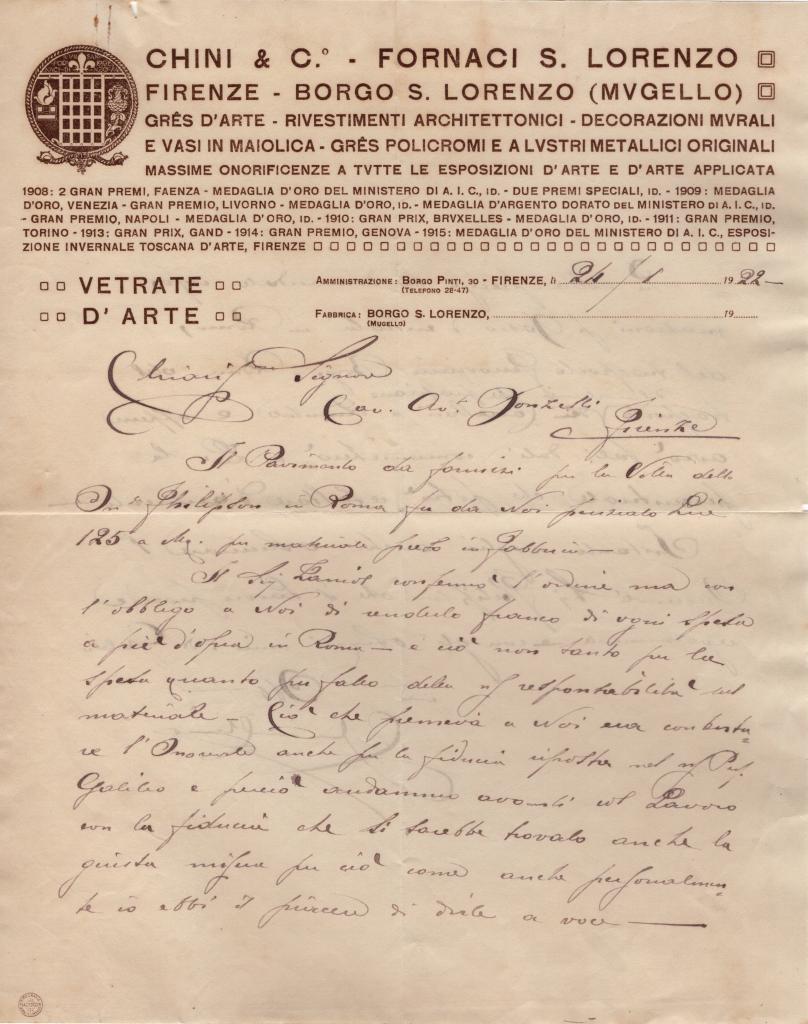 CHINI & C.° - FORNACI S. LORENZO
FIRENZE - BORGO S. LORENZO (MVGELLO)
GRÊS D'ARTE - RIVESTIMENTI ARCHITETTONICI - DECORAZIONI MVRALI
E VASI IN MAIOLICA - GRÊS POLICROMI E A LVSTRI METALLICI ORIGINALI
MASSIME ONORIFICENZE A TVTTE LE ESPOSIZIONI D'ARTE E D'ARTE APPLICATA
1908: 2 GRAN PREMI, FAENZA - MEDAGLIA D'ORO DEL MINISTERO DI A. I. C., ID. - DUE PREMI SPECIALI, ID. - 1909: MEDAGLIA
D'ORO, VENEZIA - GRAN PREMIO, LIVORNO - MEDAGLIA D'ORO, ID. - MEDAGLIA D'ARGENTO DORATO DEL MINISTERO DI A. I. C., ID.
- GRAN PREMIO, NAPOLI - MEDAGLIA D'ORO, ID. - 1910: GRAN PRIX, BRVXELLES - MEDAGLIA D'ORO, ID. - 1911: GRAN PREMIO,
TORINO - 1913: GRAN PRIX, GAND - 1914: GRAN PREMIO, GENOVA - 1915: MEDAGLIA D'ORO DEL MINISTERO DI A. I. C., ESPOSI-
ZIONE INVERNALE TOSCANA D'ARTE, FIRENZE
VETRATE
D'ARTE
AMMINISTRAZIONE: BORGO PINTI, 30 - FIRENZE, li 24/1 1922 -
(TELEFONO 28-47)
FABBRICA: BORGO S. LORENZO, 19
(MUGELLO)
Signor
Cav. Avt. Donzelli
Firenze
Il Pavimento da fornirsi per la Villa della
Philipson in Roma fu da Noi Lire
125 a Mq. per materiale preso in Fabbrica -
Il Sig. confermò l'ordine ma con
l'obbligo a Noi di renderlo franco di ogni spesa
a piè d'opera in Roma - e ciò non tanto per la
spesa quanto pel fatto della ns/ responsabilità nel
materiale - Ciò che premeva a Noi era contenta=
re l'Onorevole anche per la fiducia riposta nel ns/ Prof.
Galileo e perciò andammo avanti col Lavoro
con la fiducia che si sarebbe trovato anche la
giusta misura per ciò come anche personalmen=
te io ebbi il piacere di dirle a voce -